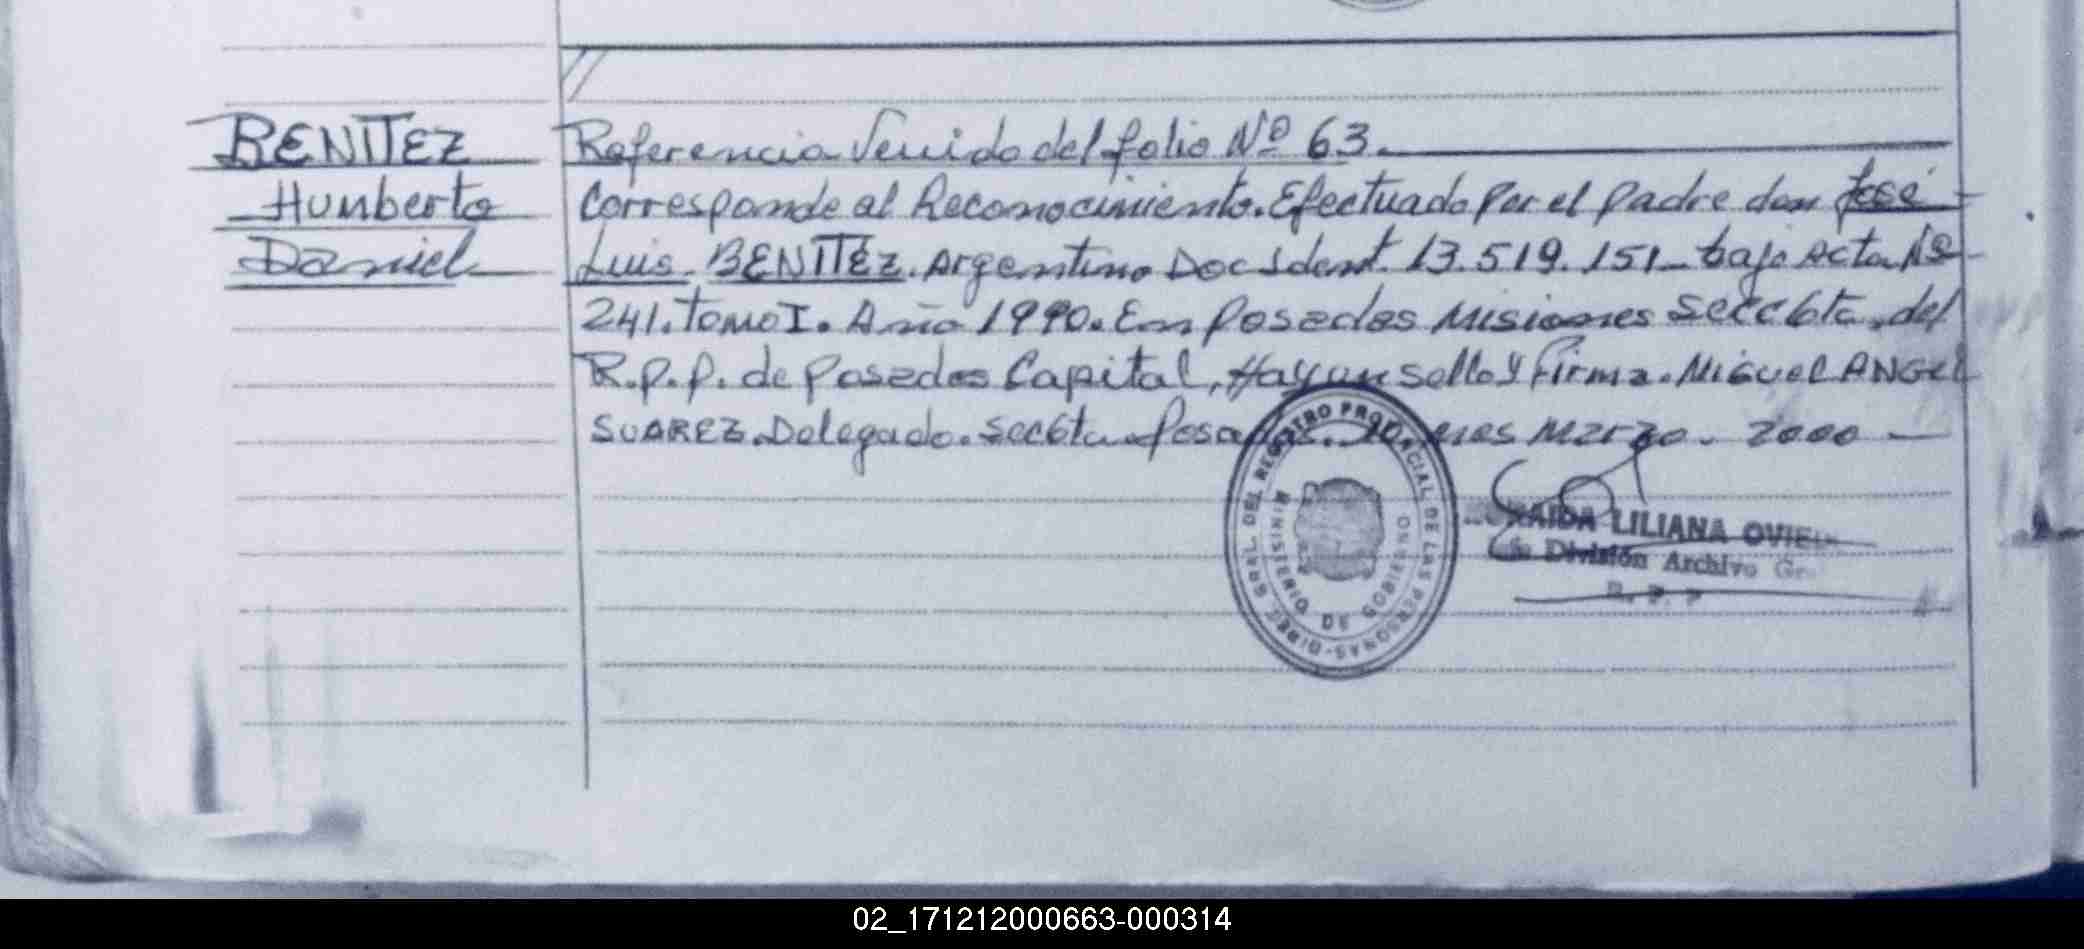 BENITEZ
Humberto
Daniel
Referencia Venido del folio Nº 63.
Corresponde al Reconocimiento. Efectuado Por el padre don José
Luis. BENITEZ. Argentino Doc Ident. 13.519.151_ bajo Acta Nº
241. Tomo I. Año 1990. En Posadas Misiones Secc 6ta. del
R.P.P. de Posadas Capital, Hay un sello y Firma. Miguel ANGEL
SUAREZ. Delegado. Secc 6ta. Posadas. Marzo. 2000 —
DIREC. GRAL. DEL REGISTRO PROVINCIAL DE LAS PERSONAS
MINISTERIO DE GOBIERNO
LILIANA
División Archivo
R. P. P
02_171212000663-000314